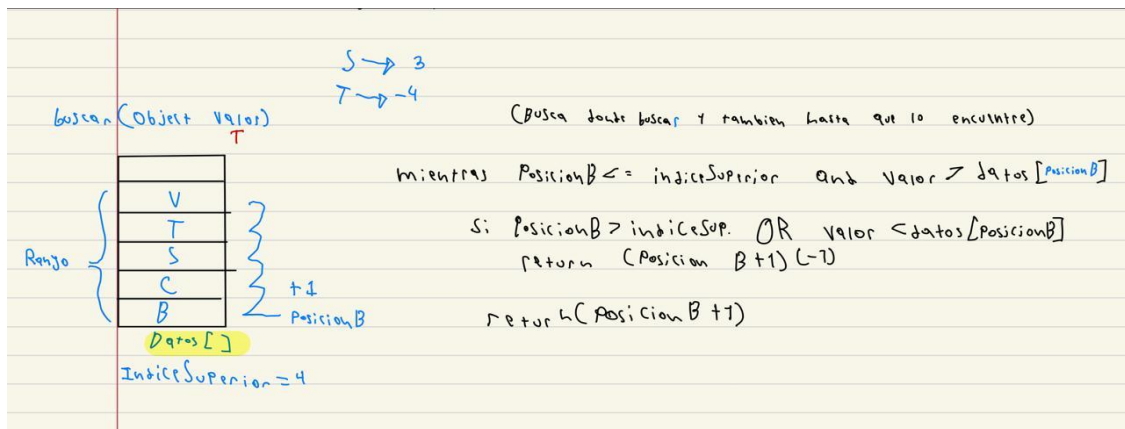 S → 3
T → -4
buscar(Object valor)
T
(Busca donde buscar y tambien hasta que lo encuentre)
mientras PosicionB <= indiceSuperior and valor > datos[PosicionB]
V
T
Si PosicionB > indiceSup. OR valor < datos[PosicionB]
Rango
S
return (Posicion B+1)(-1)
C
+1
B
PosicionB
return(Posicion B+1)
Datos[]
IndiceSuperior = 4